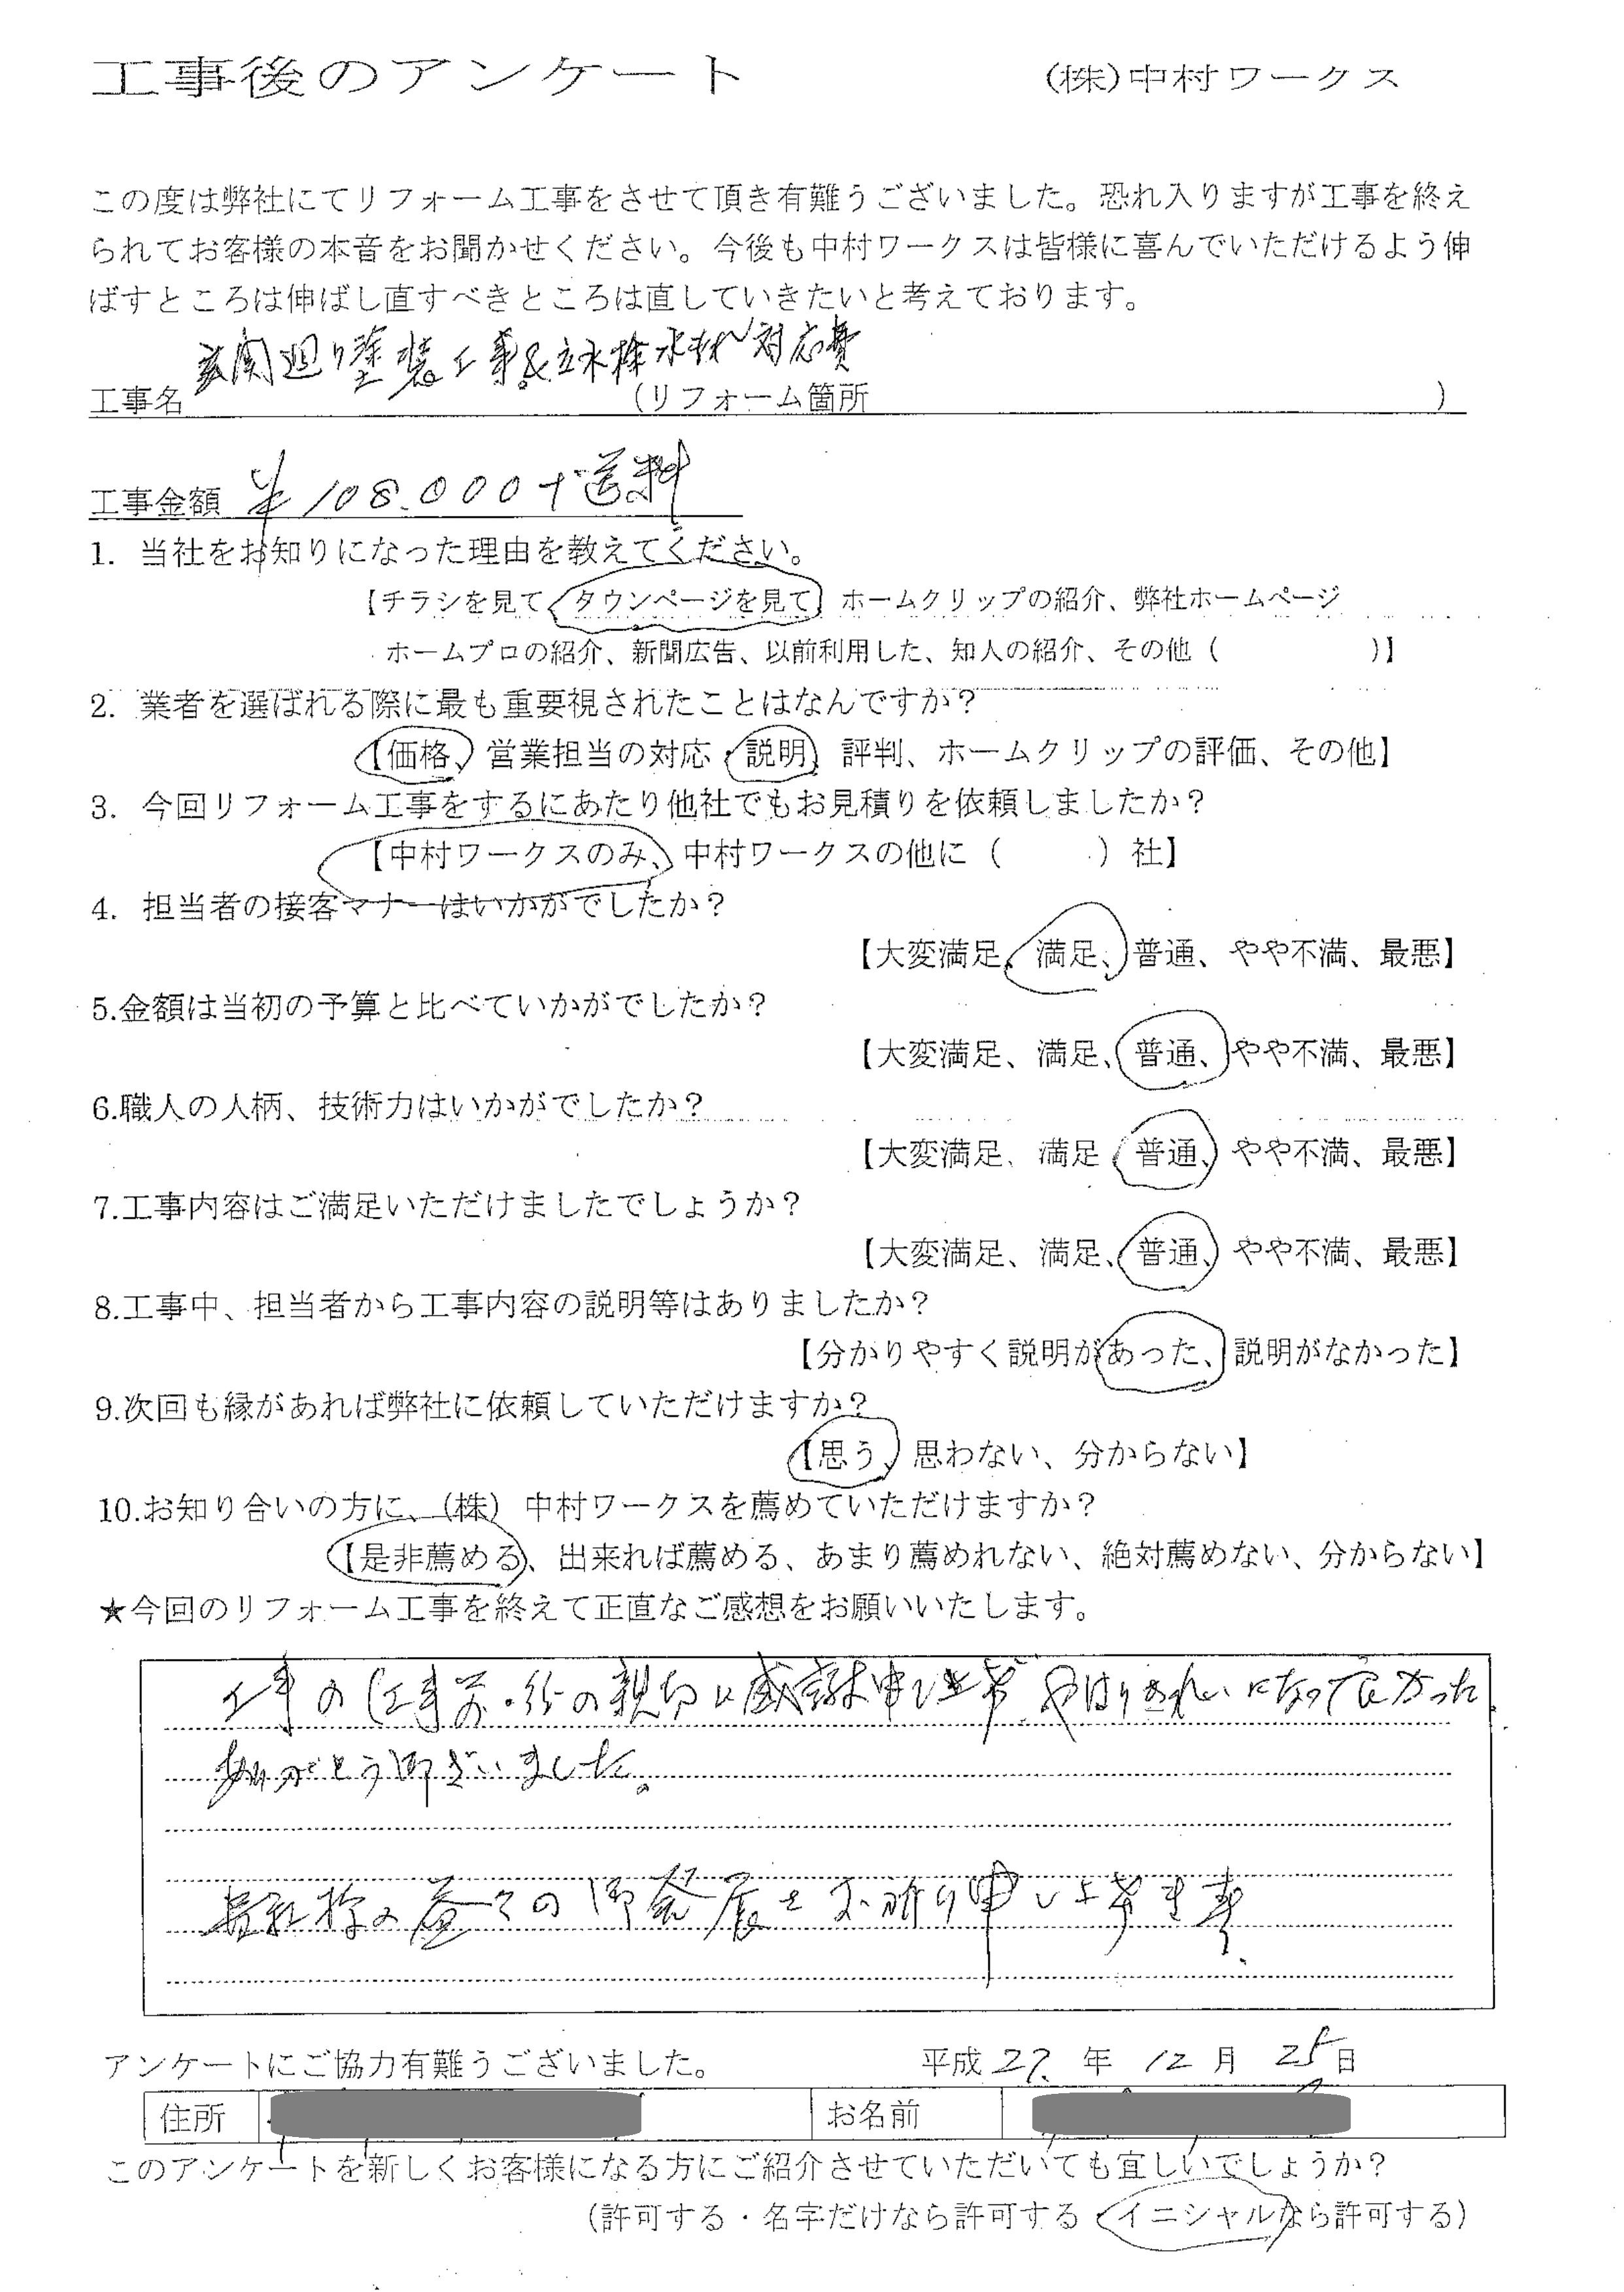 工事後のアンケート (株)中村ワークス
この度は弊社にてリフォーム工事をさせて頂き有難うございました。恐れ入りますが工事を終え
られてお客様の本音をお聞かせください。今後も中村ワークスは皆様に喜んでいただけるよう伸
ばすところは伸ばし直すべきところは直していきたいと考えております。
玄関廻り塗装工事&立水栓水もれ対応費
工事名 (リフォーム箇所 )
工事金額 ¥108.000+送料
1. 当社をお知りになった理由を教えてください。
【チラシを見て、タウンページを見て、ホームクリップの紹介、弊社ホームページ
ホームプロの紹介、新聞広告、以前利用した、知人の紹介、その他( )】
2. 業者を選ばれる際に最も重要視されたことはなんですか?
【価格、営業担当の対応・説明、評判、ホームクリップの評価、その他】
3. 今回リフォーム工事をするにあたり他社でもお見積りを依頼しましたか?
【中村ワークスのみ、中村ワークスの他に( )社】
4. 担当者の接客マナーはいかがでしたか?
【大変満足、満足、普通、やや不満、最悪】
5.金額は当初の予算と比べていかがでしたか?
【大変満足、満足、普通、やや不満、最悪】
6.職人の人柄、技術力はいかがでしたか?
【大変満足、満足、普通、やや不満、最悪】
7.工事内容はご満足いただけましたでしょうか?
【大変満足、満足、普通、やや不満、最悪】
8.工事中、担当者から工事内容の説明等はありましたか?
【分かりやすく説明があった、説明がなかった】
9.次回も縁があれば弊社に依頼していただけますか?
【思う、思わない、分からない】
10.お知り合いの方に、(株)中村ワークスを薦めていただけますか?
【是非薦める、出来れば薦める、あまり薦めれない、絶対薦めない、分からない】
★今回のリフォーム工事を終えて正直なご感想をお願いいたします。
工事の仕事 の親切に感謝申し上げ やはりきれいになってよかった
ありがとう御ざいました。
貴社様の益々の御発展をお祈り申し上げます
アンケートにご協力有難うございました。 平成27.年 12月 25日
住所 お名前
このアンケートを新しくお客様になる方にご紹介させていただいても宜しいでしょうか?
(許可する・名字だけなら許可する・イニシャルなら許可する)